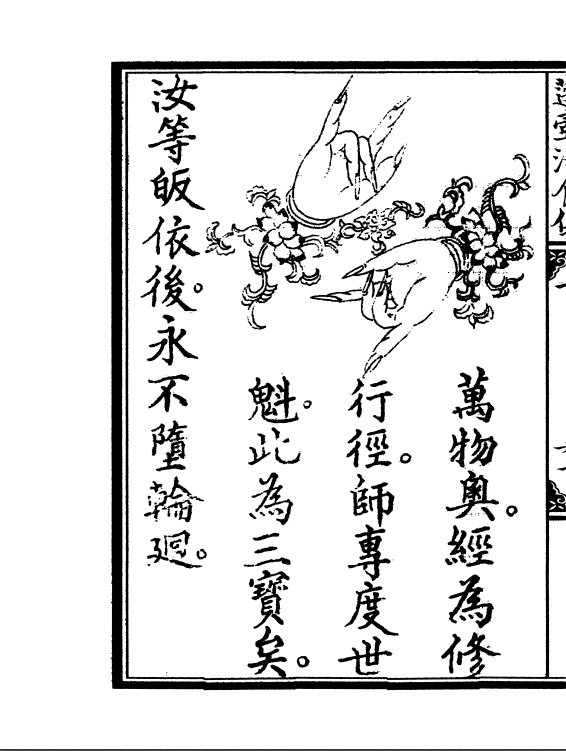 萬物奧。經為修
行徑。師專度世
魁。此為三寶矣。
汝等皈依後。永不墮輪廻。